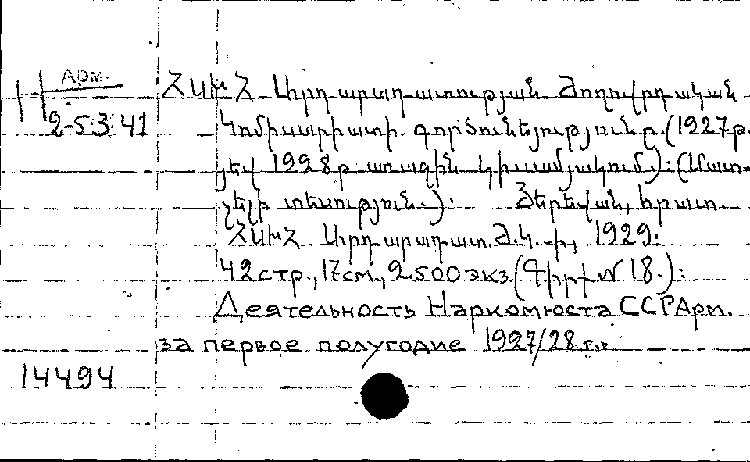 Арм.
2-5341
ՀՍԽՀ Արդարադատության Ժողովրդական
Կոմիսարիատի գործունեությունը (1927թ.
և 1928թ առաջին կիսամյակում.): (Մատ-
չելի տեսություն.): Յերեվան, հրատ.
ՀՍԽՀ Արդարադատ. Ժ.Կ.-ի, 1929.
42 стр., 17см., 2500 экз. (Գիրք № 18.):
Деятельность Наркомюста ССРАрм.
за первое полугодие 1927/28 г.г.
14494